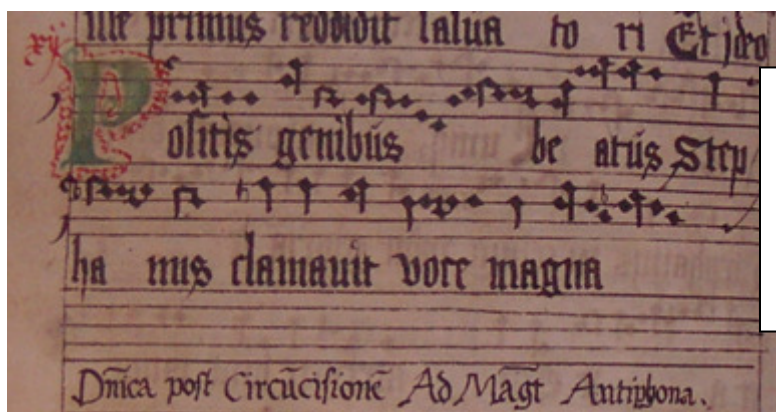 ille primus reddidit salua to ri Et ideo
xij
Positis genibus be atus Step
ha nus clamauit voce magna
Dn̄ica post Circūcisionē Ad Māgt Antiphona.